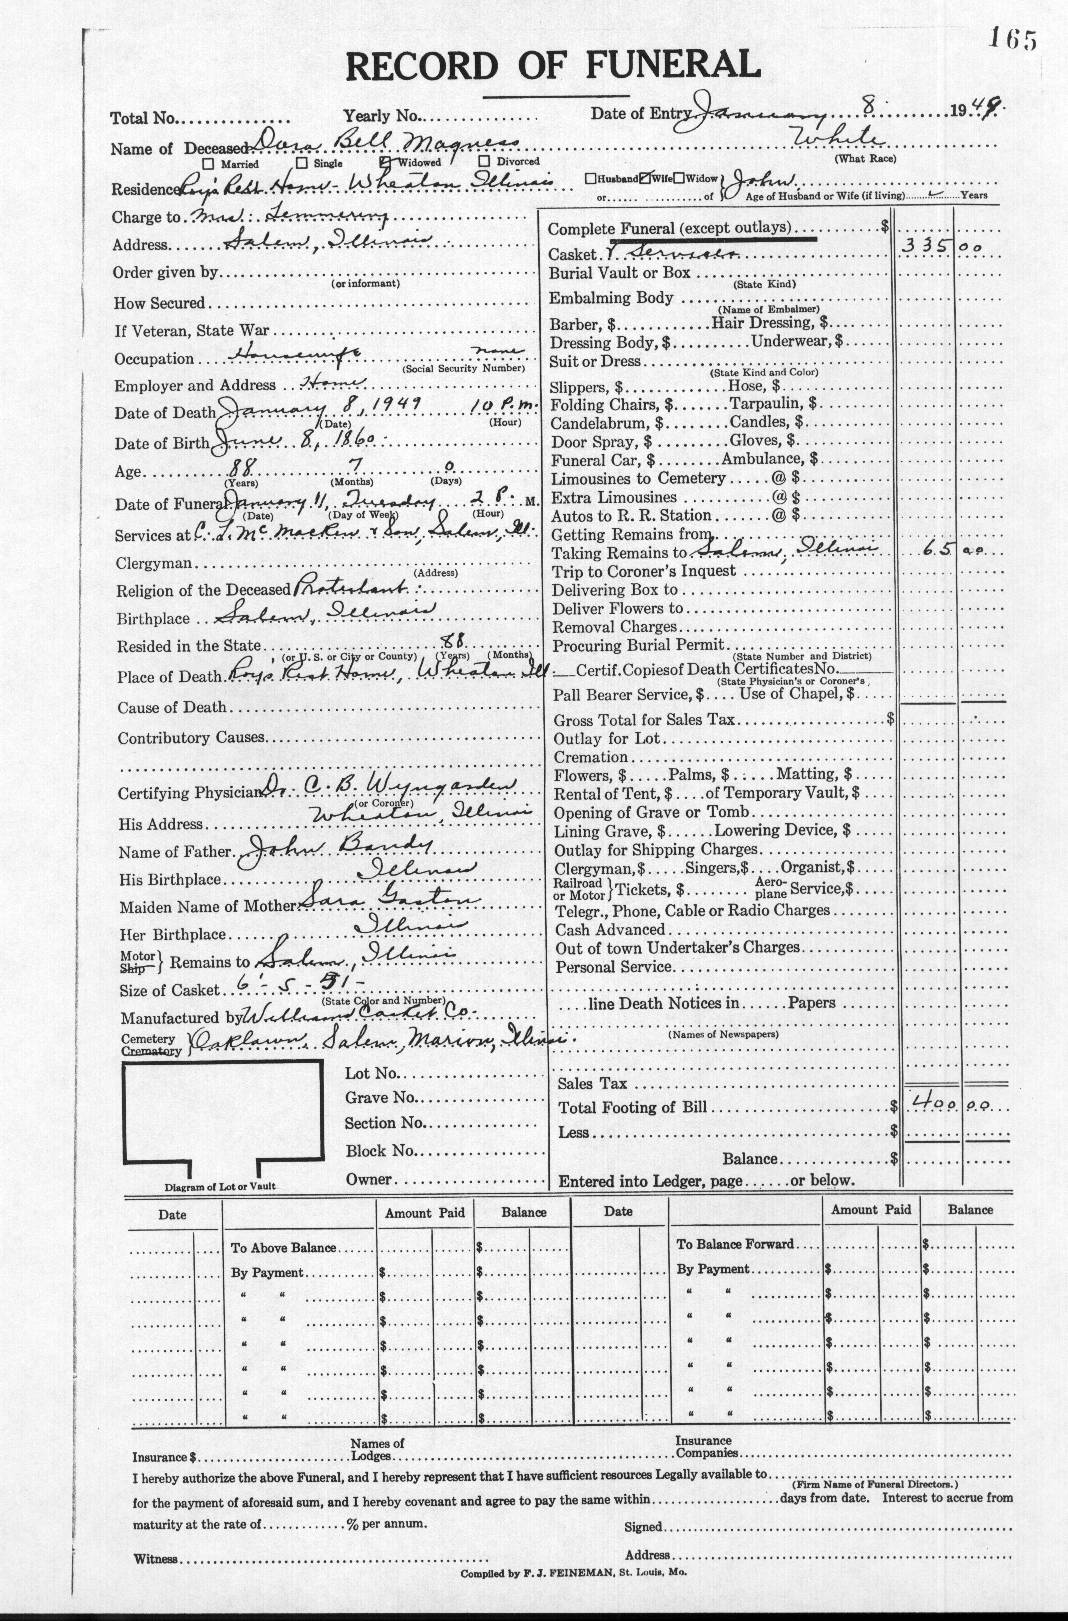 165
RECORD OF FUNERAL
Total No. Yearly No. Date of Entry January 8 1949
Name of Deceased Dora Bell Magness White
☐ Married ☐ Single ☑ Widowed ☐ Divorced (What Race)
Residence Roy's Rest Home - Wheaton, Illinois ☐ Husband ☑ Wife ☐ Widow } John
or of Age of Husband or Wife (if living) Years
Charge to Mrs. Lemmering
Address Salem, Illinois
Order given by
(or informant)
How Secured
If Veteran, State War
Occupation Housewife none
(Social Security Number)
Employer and Address Home
Date of Death January 8, 1949 10 P.m.
(Date) (Hour)
Date of Birth June 8, 1860
Age 88 7 0
(Years) (Months) (Days)
Date of Funeral January 11, Tuesday 2 P. M.
(Date) (Day of Week) (Hour)
Services at C. T. McMacken & Son, Salem, Ill.
Clergyman
(Address)
Religion of the Deceased Protestant
Birthplace Salem, Illinois
Resided in the State 88
(or U. S. or City or County) (Years) (Months)
Place of Death Roys Rest Home, Wheaton Ill.
Cause of Death
Contributory Causes
Certifying Physician Dr. C. B. Wyngarden
(or Coroner)
His Address Wheaton, Illinois
Name of Father John Bandy
His Birthplace Illinois
Maiden Name of Mother Sara Gaston
Her Birthplace Illinois
Motor
Ship } Remains to Salem, Illinois
Size of Casket 6'- 5 - 51 -
(State Color and Number)
Manufactured by Williams Casket Co.
Cemetery
Crematory } Oaklawn, Salem, Marion, Illinois.
Lot No.
Grave No.
Section No.
Block No.
Owner
Diagram of Lot or Vault
Complete Funeral (except outlays) $
Casket & Services 335 00
Burial Vault or Box
(State Kind)
Embalming Body
(Name of Embalmer)
Barber, $ Hair Dressing, $
Dressing Body, $ Underwear, $
Suit or Dress
(State Kind and Color)
Slippers, $ Hose, $
Folding Chairs, $ Tarpaulin, $
Candelabrum, $ Candles, $
Door Spray, $ Gloves, $
Funeral Car, $ Ambulance, $
Limousines to Cemetery @ $
Extra Limousines @ $
Autos to R. R. Station @ $
Getting Remains from
Taking Remains to Salem, Illinois 65 00
Trip to Coroner's Inquest
Delivering Box to
Deliver Flowers to
Removal Charges
Procuring Burial Permit
(State Number and District)
Certif. Copies of Death Certificates No.
(State Physician's or Coroner's
Pall Bearer Service, $ Use of Chapel, $
Gross Total for Sales Tax $
Outlay for Lot
Cremation
Flowers, $ Palms, $ Matting, $
Rental of Tent, $ of Temporary Vault, $
Opening of Grave or Tomb
Lining Grave, $ Lowering Device, $
Outlay for Shipping Charges
Clergyman, $ Singers, $ Organist, $
Railroad
or Motor } Tickets, $ Aero-
plane Service, $
Telegr., Phone, Cable or Radio Charges
Cash Advanced
Out of town Undertaker's Charges
Personal Service
line Death Notices in Papers
(Names of Newspapers)
Sales Tax
Total Footing of Bill $ 400 00
Less $
Balance $
Entered into Ledger, page or below.
Date Amount Paid Balance Date Amount Paid Balance
To Above Balance $ To Balance Forward $
By Payment $ $ By Payment $ $
" " $ $ " " $ $
" " $ $ " " $ $
" " $ $ " " $ $
" " $ $ " " $ $
" " $ $ " " $ $
" " $ $ " " $ $
Insurance $ Names of Lodges Insurance Companies
I hereby authorize the above Funeral, and I hereby represent that I have sufficient resources Legally available to
(Firm Name of Funeral Directors.)
for the payment of aforesaid sum, and I hereby covenant and agree to pay the same within days from date. Interest to accrue from
maturity at the rate of % per annum. Signed
Witness Address
Compiled by F. J. FEINEMAN, St. Louis, Mo.